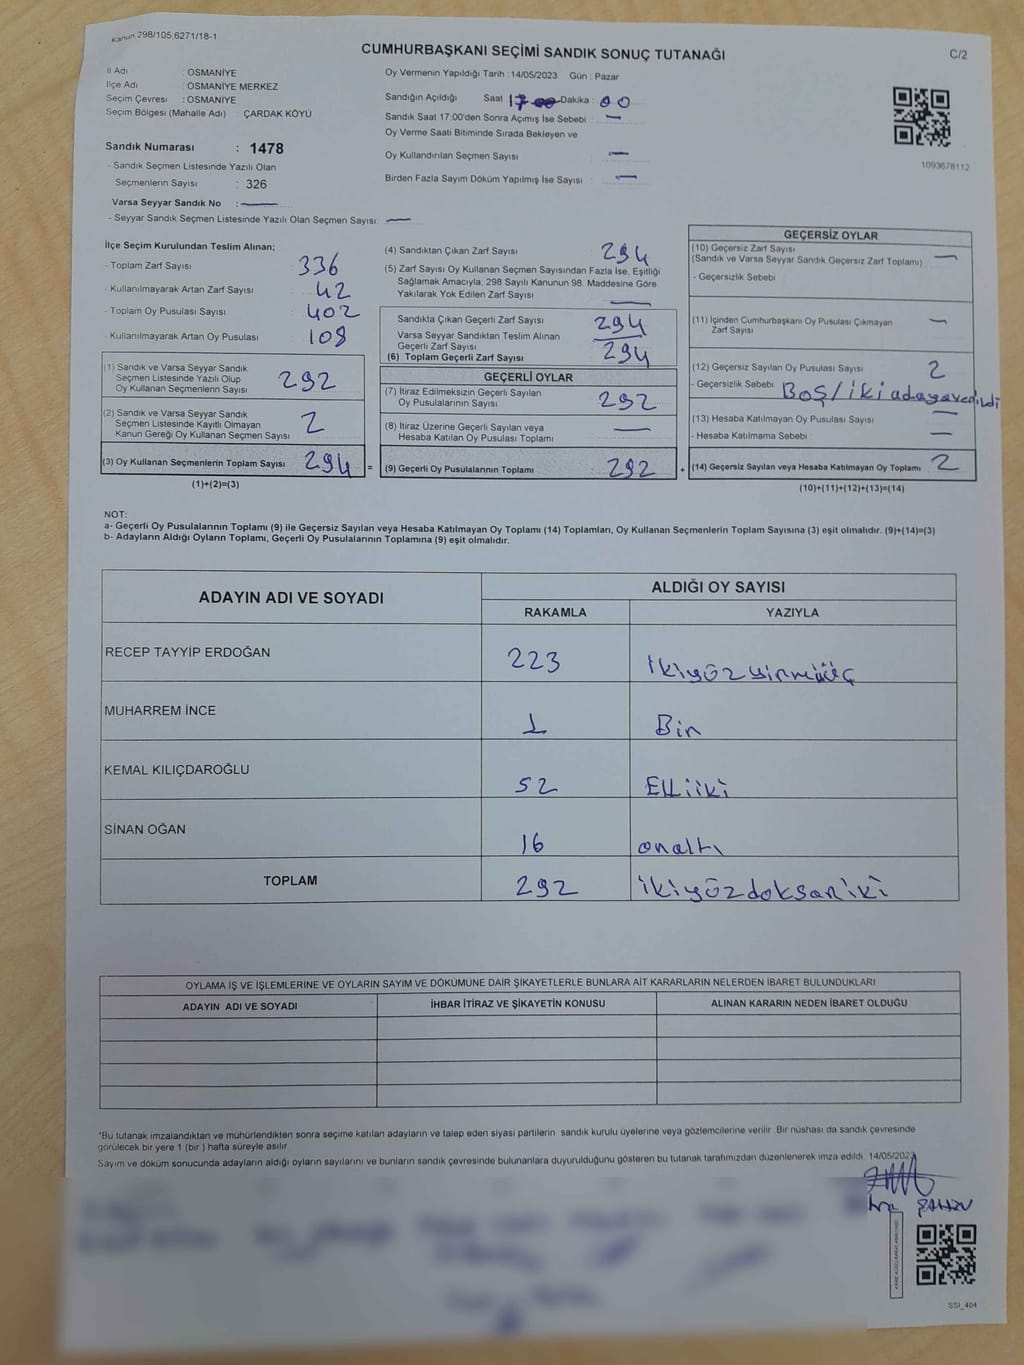 Kanun 298/105,6271/18-1
CUMHURBAŞKANI SEÇİMİ SANDIK SONUÇ TUTANAĞI
C/2
İl Adı : OSMANİYE
İlçe Adı : OSMANİYE MERKEZ
Seçim Çevresi : OSMANİYE
Seçim Bölgesi (Mahalle Adı) : ÇARDAK KÖYÜ
Sandık Numarası : 1478
- Sandık Seçmen Listesinde Yazılı Olan
Seçmenlerin Sayısı : 326
Varsa Seyyar Sandık No :
- Seyyar Sandık Seçmen Listesinde Yazılı Olan Seçmen Sayısı:
Oy Vermenin Yapıldığı Tarih : 14/05/2023 Gün : Pazar
Sandığın Açıldığı Saat 17 Dakika : 00
Sandık Saat 17:00'den Sonra Açımış İse Sebebi :
Oy Verme Saati Bitiminde Sırada Bekleyen ve
Oy Kullandırılan Seçmen Sayısı
Birden Fazla Sayım Döküm Yapılmış İse Sayısı :
1093678112
İlçe Seçim Kurulundan Teslim Alınan;
- Toplam Zarf Sayısı : 336
- Kullanılmayarak Artan Zarf Sayısı : 42
- Toplam Oy Pusulası Sayısı : 402
- Kullanılmayarak Artan Oy Pusulası : 108
(1) Sandık ve Varsa Seyyar Sandık
Seçmen Listesinde Yazılı Olup
Oy Kullanan Seçmenlerin Sayısı 292
(2) Sandık ve Varsa Seyyar Sandık
Seçmen Listesinde Kayıtlı Olmayan
Kanun Gereği Oy Kullanan Seçmen Sayısı 2
(3) Oy Kullanan Seçmenlerin Toplam Sayısı 294 =
(1)+(2)=(3)
(4) Sandıktan Çıkan Zarf Sayısı 294
(5) Zarf Sayısı Oy Kullanan Seçmen Sayısından Fazla İse, Eşitliği
Sağlamak Amacıyla, 298 Sayılı Kanunun 98. Maddesine Göre
Yakılarak Yok Edilen Zarf Sayısı
Sandıkta Çıkan Geçerli Zarf Sayısı 294
Varsa Seyyar Sandıktan Teslim Alınan
Geçerli Zarf Sayısı
(6) Toplam Geçerli Zarf Sayısı 294
GEÇERLİ OYLAR
(7) İtiraz Edilmeksizin Geçerli Sayılan
Oy Pusulalarının Sayısı 292
(8) İtiraz Üzerine Geçerli Sayılan veya
Hesaba Katılan Oy Pusulası Toplamı
(9) Geçerli Oy Pusulalarının Toplamı 292 +
GEÇERSİZ OYLAR
(10) Geçersiz Zarf Sayısı
(Sandık ve Varsa Seyyar Sandık Geçersiz Zarf Toplamı)
- Geçersizlik Sebebi
(11) İçinden Cumhurbaşkanı Oy Pusulası Çıkmayan
Zarf Sayısı
(12) Geçersiz Sayılan Oy Pusulası Sayısı 2
- Geçersizlik Sebebi Boş/iki adaya verildi
(13) Hesaba Katılmayan Oy Pusulası Sayısı
- Hesaba Katılmama Sebebi
(14) Geçersiz Sayılan veya Hesaba Katılmayan Oy Toplamı 2
(10)+(11)+(12)+(13)=(14)
NOT:
a- Geçerli Oy Pusulalarının Toplamı (9) ile Geçersiz Sayılan veya Hesaba Katılmayan Oy Toplamı (14) Toplamları, Oy Kullanan Seçmenlerin Toplam Sayısına (3) eşit olmalıdır. (9)+(14)=(3)
b- Adayların Aldığı Oyların Toplamı, Geçerli Oy Pusulalarının Toplamına (9) eşit olmalıdır.
ADAYIN ADI VE SOYADI
ALDIĞI OY SAYISI
RAKAMLA YAZIYLA
RECEP TAYYİP ERDOĞAN 223 ikiyüzyirmiüç
MUHARREM İNCE 1 Bir
KEMAL KILIÇDAROĞLU 52 Elliiki
SİNAN OĞAN 16 onaltı
TOPLAM 292 ikiyüzdoksaniki
OYLAMA İŞ VE İŞLEMLERİNE VE OYLARIN SAYIM VE DÖKÜMÜNE DAİR ŞİKAYETLERLE BUNLARA AİT KARARLARIN NELERDEN İBARET BULUNDUKLARI
ADAYIN ADI VE SOYADI İHBAR İTİRAZ VE ŞİKAYETİN KONUSU ALINAN KARARIN NEDEN İBARET OLDUĞU
*Bu tutanak imzalandıktan ve mühürlendikten sonra seçime katılan adayların ve talep eden siyasi partilerin sandık kurulu üyelerine veya gözlemcilerine verilir. Bir nüshası da sandık çevresinde
görülecek bir yere 1 (bir ) hafta süreyle asılır.
Sayım ve döküm sonucunda adayların aldığı oyların sayılarını ve bunların sandık çevresinde bulunanlara duyurulduğunu gösteren bu tutanak tarafımızdan düzenlenerek imza edildi. 14/05/2023
ŞAHİN
SSI_404